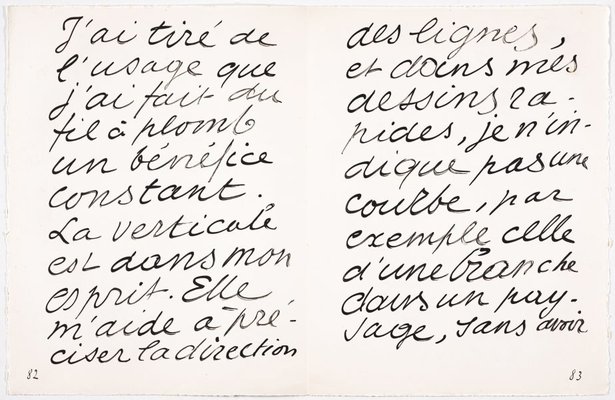 J'ai tiré de
l'usage que
j'ai fait du
fil à plomb
un bénéfice
constant.
La verticale
est dans mon
esprit. Elle
m'aide à pré-
ciser la direction
82
des lignes,
et dans mes
dessins ra-
pides, je n'in-
dique pas une
courbe, par
exemple celle
d'une branche
dans un pay-
sage, sans avoir
83